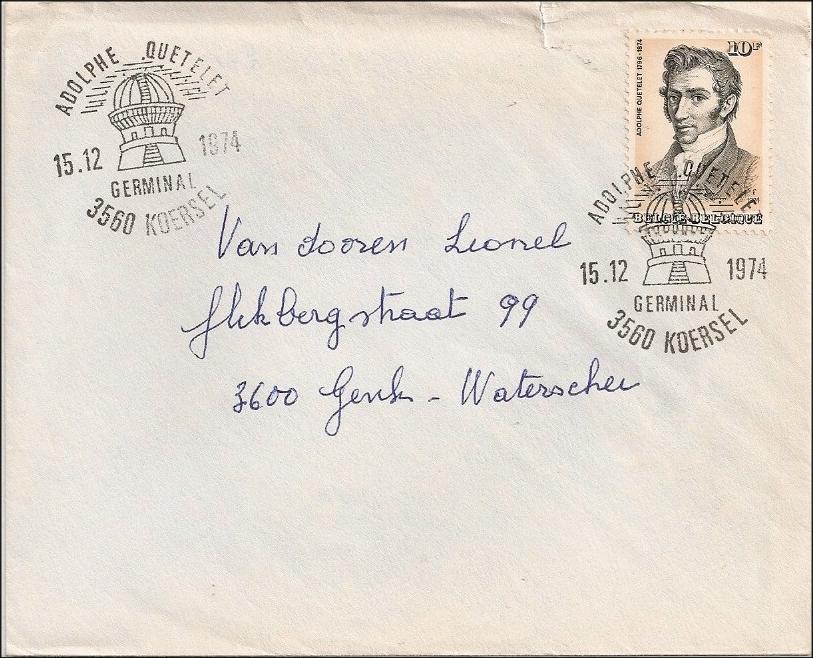 ADOLPHE QUETELET
15.12 1974
GERMINAL
3560 KOERSEL
ADOLPHE QUETELET 1796-1874
10F
BELGIË-BELGIQUE
ADOLPHE QUETELE
15.12 1974
GERMINAL
3560 KOERSEL
Van dooren Lionel
99
3600 Genk - Waterschei